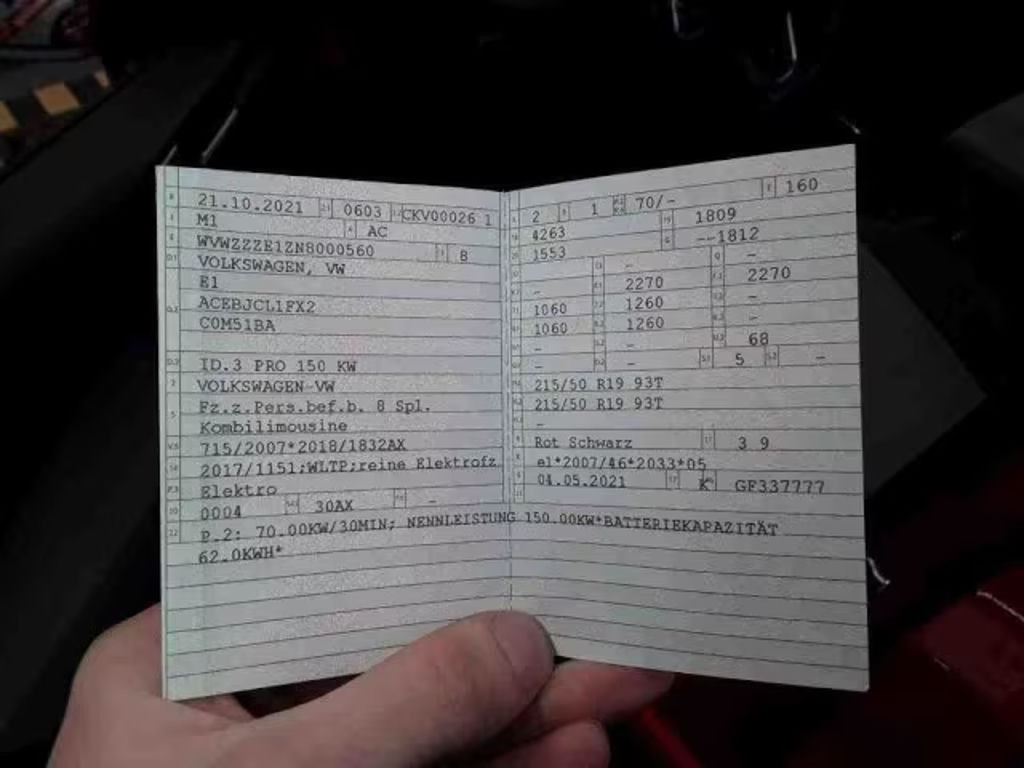 21.10.2021 0603 CKV00026 1
M1 AC
WVWZZZE1ZN8000560 8
VOLKSWAGEN, VW
E1
ACEBJCL1FX2
COM51BA
ID.3 PRO 150 KW
VOLKSWAGEN-VW
Fz.z.Pers.bef.b. 8 Spl.
Kombilimousine
715/2007*2018/1832AX
2017/1151;WLTP;reine Elektrofz
Elektro
0004 30AX -
2 1 70/- 160
4263 1809
1553 --1812
- -
- 2270 2270
1060 1260 -
1060 1260 -
- - 68
- - 5 -
215/50 R19 93T
215/50 R19 93T
-
Rot Schwarz 3 9
e1*2007/46*2033*05
04.05.2021 K GF337777
P.2: 70.00KW/30MIN; NENNLEISTUNG 150.00KW*BATTERIEKAPAZITÄT
62.0KWH*